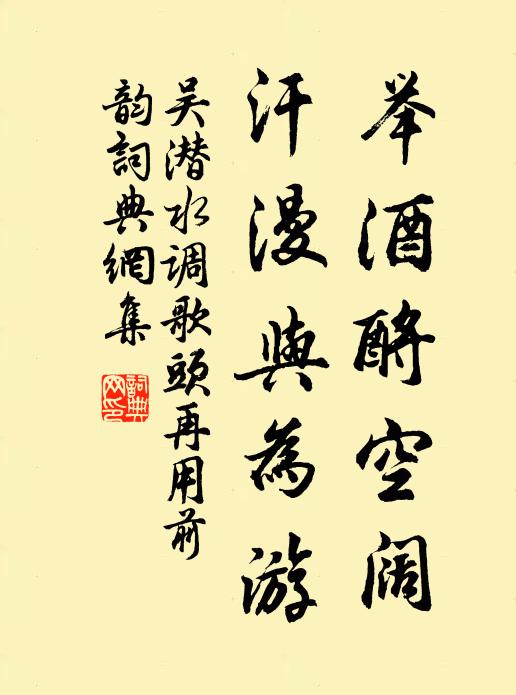 举酒酹空阔
汗漫與為游
吴潜水调歌頭再用前
韵詞典網集
詞典
网印